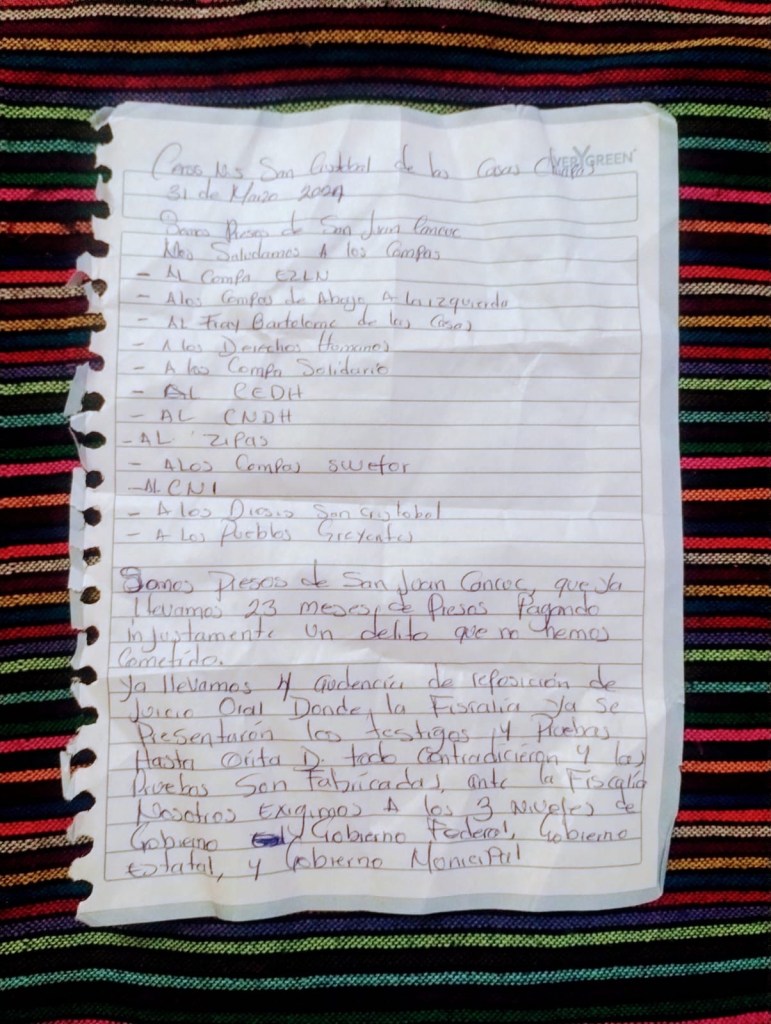 VERYGREEN
Cerso N.5 San Cristobal de las Casas Chiapas
31 de Marzo 2024
Somos Presos de San Juan Cancuc
Nos Saludamos A los Compas
- AL Compa EZLN
- A los Compas de Abajo A la izquierda
- AL Fray Bartolome de las Casas
- A los Derechos Humanos
- A los Compa Solidario
- AL CEDH
- AL CNDH
- AL Zipas
- A Los Compas swefor
- AL CNI
- A los Diosis San cristobal
- A Los Pueblos Creyentes
Somos Presos de San Juan Cancuc, que ya
llevamos 23 meses, de Presos Pagando
injustamente un delito que no hemos
Cometido.
Ya llevamos 4 audencia de reposición de
Juicio Oral Donde, la Fiscalia ya se
Presentaron los testigos y Pruebas
Hasta Orita D. todo Contradicieron y las
Pruebas Son Fabricadas, ante la Fiscalia
Nosotros Exigimos A los 3 Niveles de
Gobierno Gobierno Federal, Gobierno
Estatal, y Gobierno Monicipal